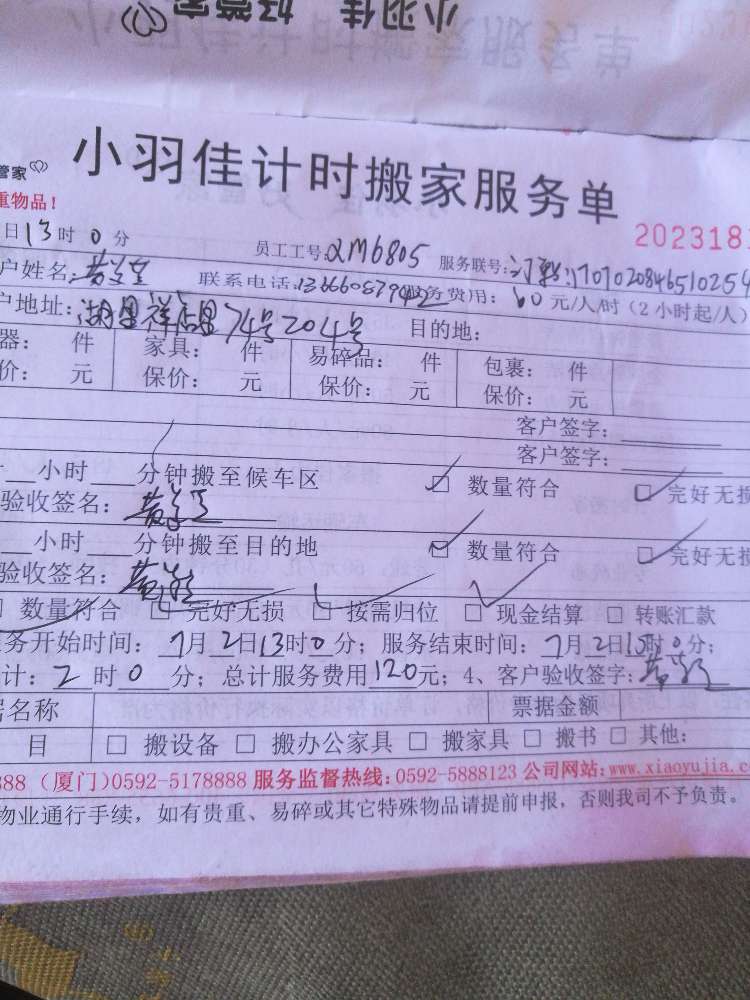 小羽佳 好管家
小羽佳计时搬家服务单
管家
重物品！
2023181
日13时0分 员工工号：2M6805 服务联号：1707020846510254
户姓名： 联系电话： 服务费用：60元/人/时（2小时起/人）
户地址：湖里祥店里74号204号 目的地：
器： 件 家具： 件 易碎品： 件 包裹： 件
价： 元 保价： 元 保价： 元 保价： 元
客户签字：
客户签字：
小时 分钟搬至候车区 ☑ 数量符合 ☑ 完好无损
验收签名：
小时 分钟搬至目的地 ☑ 数量符合 ☑ 完好无损
验收签名：
数量符合 ☑ 完好无损 ☑ 按需归位 ☑ 现金结算 □ 转账汇款
务开始时间：7月2日13时0分；服务结束时间：7月2日15时0分；
计：2时0分；总计服务费用120元；4、客户验收签字：
据名称 票据金额
目 □ 搬设备 □ 搬办公家具 □ 搬家具 □ 搬书 □ 其他：
888（厦门）0592-5178888 服务监督热线：0592-5888123 公司网站：www.xiaoyujia.c
物业通行手续，如有贵重、易碎或其它特殊物品请提前申报，否则我司不予负责。